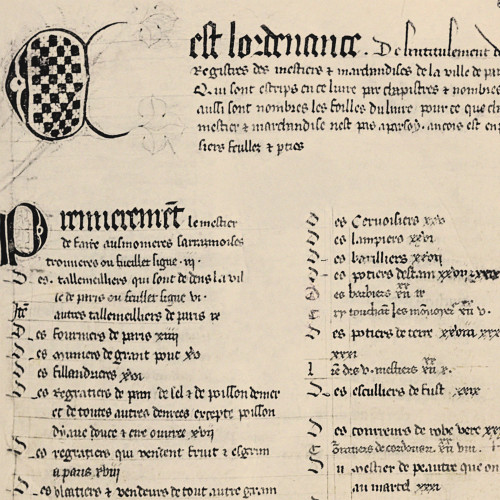 est lordenance. De lintitulement d
Registres des mestiers & marchandises de la ville de par
Qui sont escrips en ce liure par chapistres & nombres
aussi sont nombres les foilles du liure pour ce que ch
mestier & marchandise nest pas apar soy. ancois est en
siers feullez & pties
Premierement le mestier
de faire aumosnieres sarrazinoises
trouuerez ou fueillet signe · iij ·
es. tallemeliers qui sont dedens la vil
le de paris ou feullet signe vi ·
Itē autres tallemeliers de paris ix
es fourniers de paris xiiij
es muniers de grant pont xv
es fillandriers xvi
es regratiers de pain de sel & de poisson de mer
et de toutes autres denrees excepte poisson
deaue douce & cire ouuree xvij
es regratiers qui vendent fruit & esgrim
a paris xviij
es blatiers & vendeurs de tout autre grain
es Ceruoisiers
es lampiers
es barilliers
es potiers destain
es barbiers
es potiers de terre
xxxi
des · v · mestiers
es esculliers de fust xxix
es coureurs de robe vere
le mestier de peautre que on
au martel